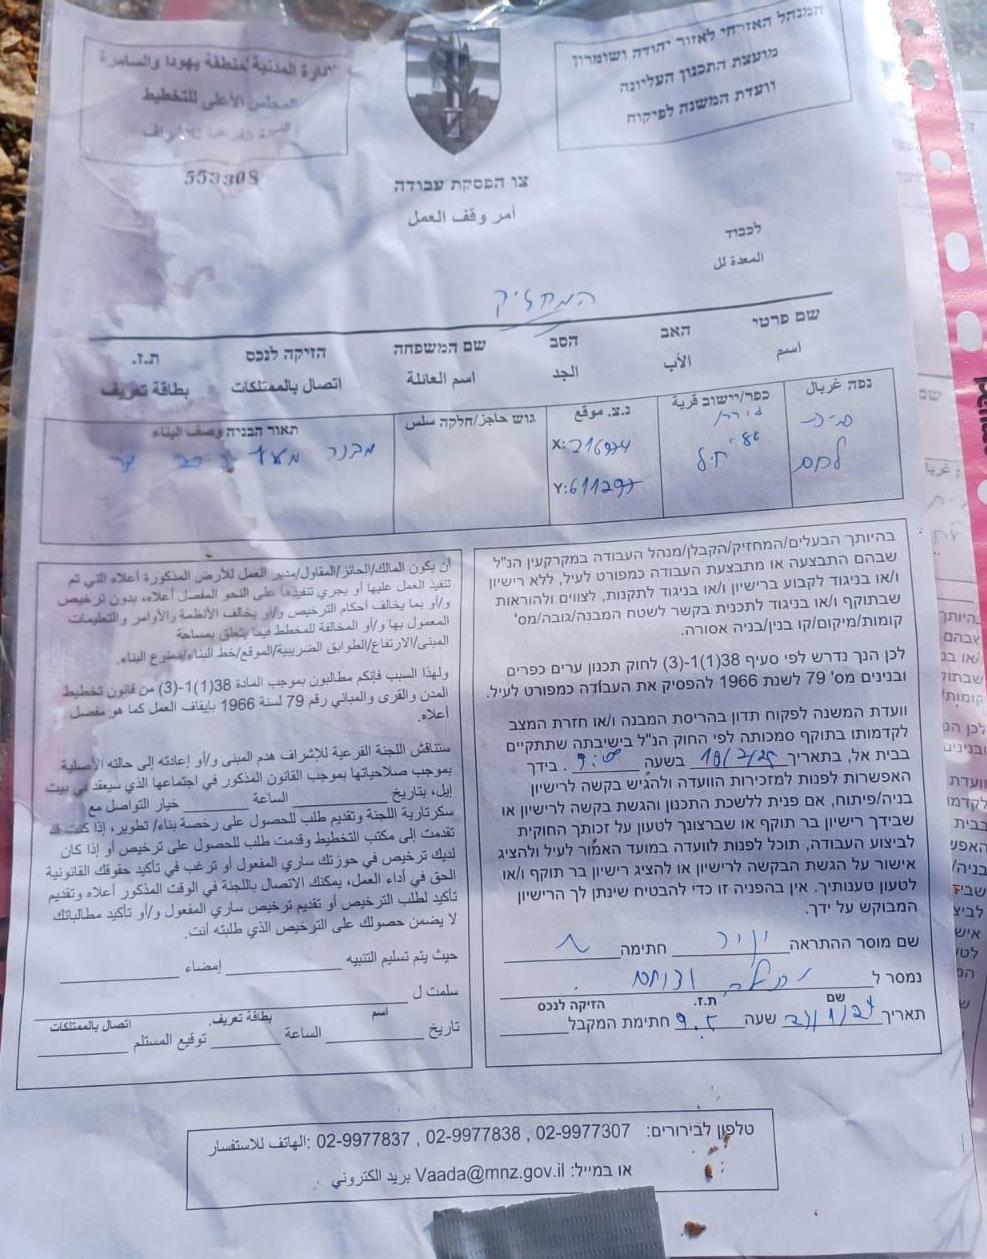 המנהל האזרחי לאזור יהודה ושומרון
מועצת התכנון העליונה
וועדת המשנה לפיקוח
الادارة المدنية لمنطقة يهودا والسامرة
المجلس الأعلى للتخطيط
اللجنة الفرعية للإشراف
553308
צו הפסקת עבודה
أمر وقف العمل
לכבוד
המחזיק
שם פרטי האב הסב שם המשפחה הזיקה לנכס ת.ז.
اسم الأب الجد اسم العائلة اتصال بالممتلكات بطاقة تعريف
נפה غربال
כפר/יישוב قرية
נ.צ. موقع
גוש حاجز/חלקה سلس
תאור הבניה وصف البناء
בית
לחם
X:
Y:
מבנה
בהיותך הבעלים/המחזיק/הקבלן/מנהל העבודה במקרקעין הנ"ל
שבהם התבצעה או מתבצעת העבודה כמפורט לעיל, ללא רישיון
ו/או בניגוד לקבוע ברישיון ו/או בניגוד לתקנות, לצווים ולהוראות
שבתוקף ו/או בניגוד לתכנית בקשר לשטח המבנה/גובה/מס'
קומות/מיקום/קו בנין/בניה אסורה.
לכן הנך נדרש לפי סעיף 38(1)-(3) לחוק תכנון ערים כפרים
ובנינים מס' 79 לשנת 1966 להפסיק את העבודה כמפורט לעיל.
וועדת המשנה לפקוח תדון בהריסת המבנה ו/או חזרת המצב
לקדמותו בתוקף סמכותה לפי החוק הנ"ל בישיבתה שתתקיים
בבית אל, בתאריך בשעה . בידך
האפשרות לפנות למזכירות הוועדה ולהגיש בקשה לרישיון
בניה/פיתוח, אם פנית ללשכת התכנון והגשת בקשה לרישיון או
שבידך רישיון בר תוקף או שברצונך לטעון על זכותך החוקית
לביצוע העבודה, תוכל לפנות לוועדה במועד האמור לעיל ולהציג
אישור על הגשת הבקשה לרישיון או להציג רישיון בר תוקף ו/או
לטעון טענותיך. אין בהפניה זו כדי להבטיח שינתן לך הרישיון
המבוקש על ידך.
שם מוסר ההתראה חתימה
נמסר ל
שם ת.ז. הזיקה לנכס
תאריך שעה חתימת המקבל
أن يكون المالك/الحائز/المقاول/مدير العمل للأرض المذكورة أعلاه التي تم
تنفيذ العمل عليها أو يجري تنفيذها على النحو المفصل أعلاه، بدون ترخيص
و/أو بما يخالف أحكام الترخيص و/أو يخالف الأنظمة والأوامر والتعليمات
المعمول بها و/أو المخالفة للمخطط فيما يتعلق بمساحة
المبنى/الارتفاع/الطوابق الضريبية/الموقع/خط البناء/ممنوع البناء.
ولهذا السبب فإنكم مطالبون بموجب المادة 38(1)-(3) من قانون تخطيط
المدن والقرى والمباني رقم 79 لسنة 1966 بإيقاف العمل كما هو مفصل
أعلاه.
ستناقش اللجنة الفرعية للإشراف هدم المبنى و/أو إعادته إلى حالته الأصلية
بموجب صلاحياتها بموجب القانون المذكور في اجتماعها الذي سيعقد في بيت
إيل، بتاريخ الساعة خيار التواصل مع
سكرتارية اللجنة وتقديم طلب للحصول على رخصة بناء/ تطوير، إذا كنت قد
تقدمت إلى مكتب التخطيط وقدمت طلب للحصول على ترخيص أو إذا كان
لديك ترخيص في حوزتك ساري المفعول أو ترغب في تأكيد حقوقك القانونية
الحق في أداء العمل، يمكنك الاتصال باللجنة في الوقت المذكور أعلاه وتقديم
تأكيد لطلب الترخيص أو تقديم ترخيص ساري المفعول و/أو تأكيد مطالباتك
لا يضمن حصولك على الترخيص الذي طلبته أنت.
حيث يتم تسليم التنبيه إمضاء
سلمت ل
اسم بطاقة تعريف. اتصال بالممتلكات
تاريخ الساعة توقيع المستلم
טלפון לבירורים: 02-9977307 , 02-9977838 , 02-9977837 :الهاتف للاستفسار
או במייל: Vaada@mnz.gov.il بريد الكتروني